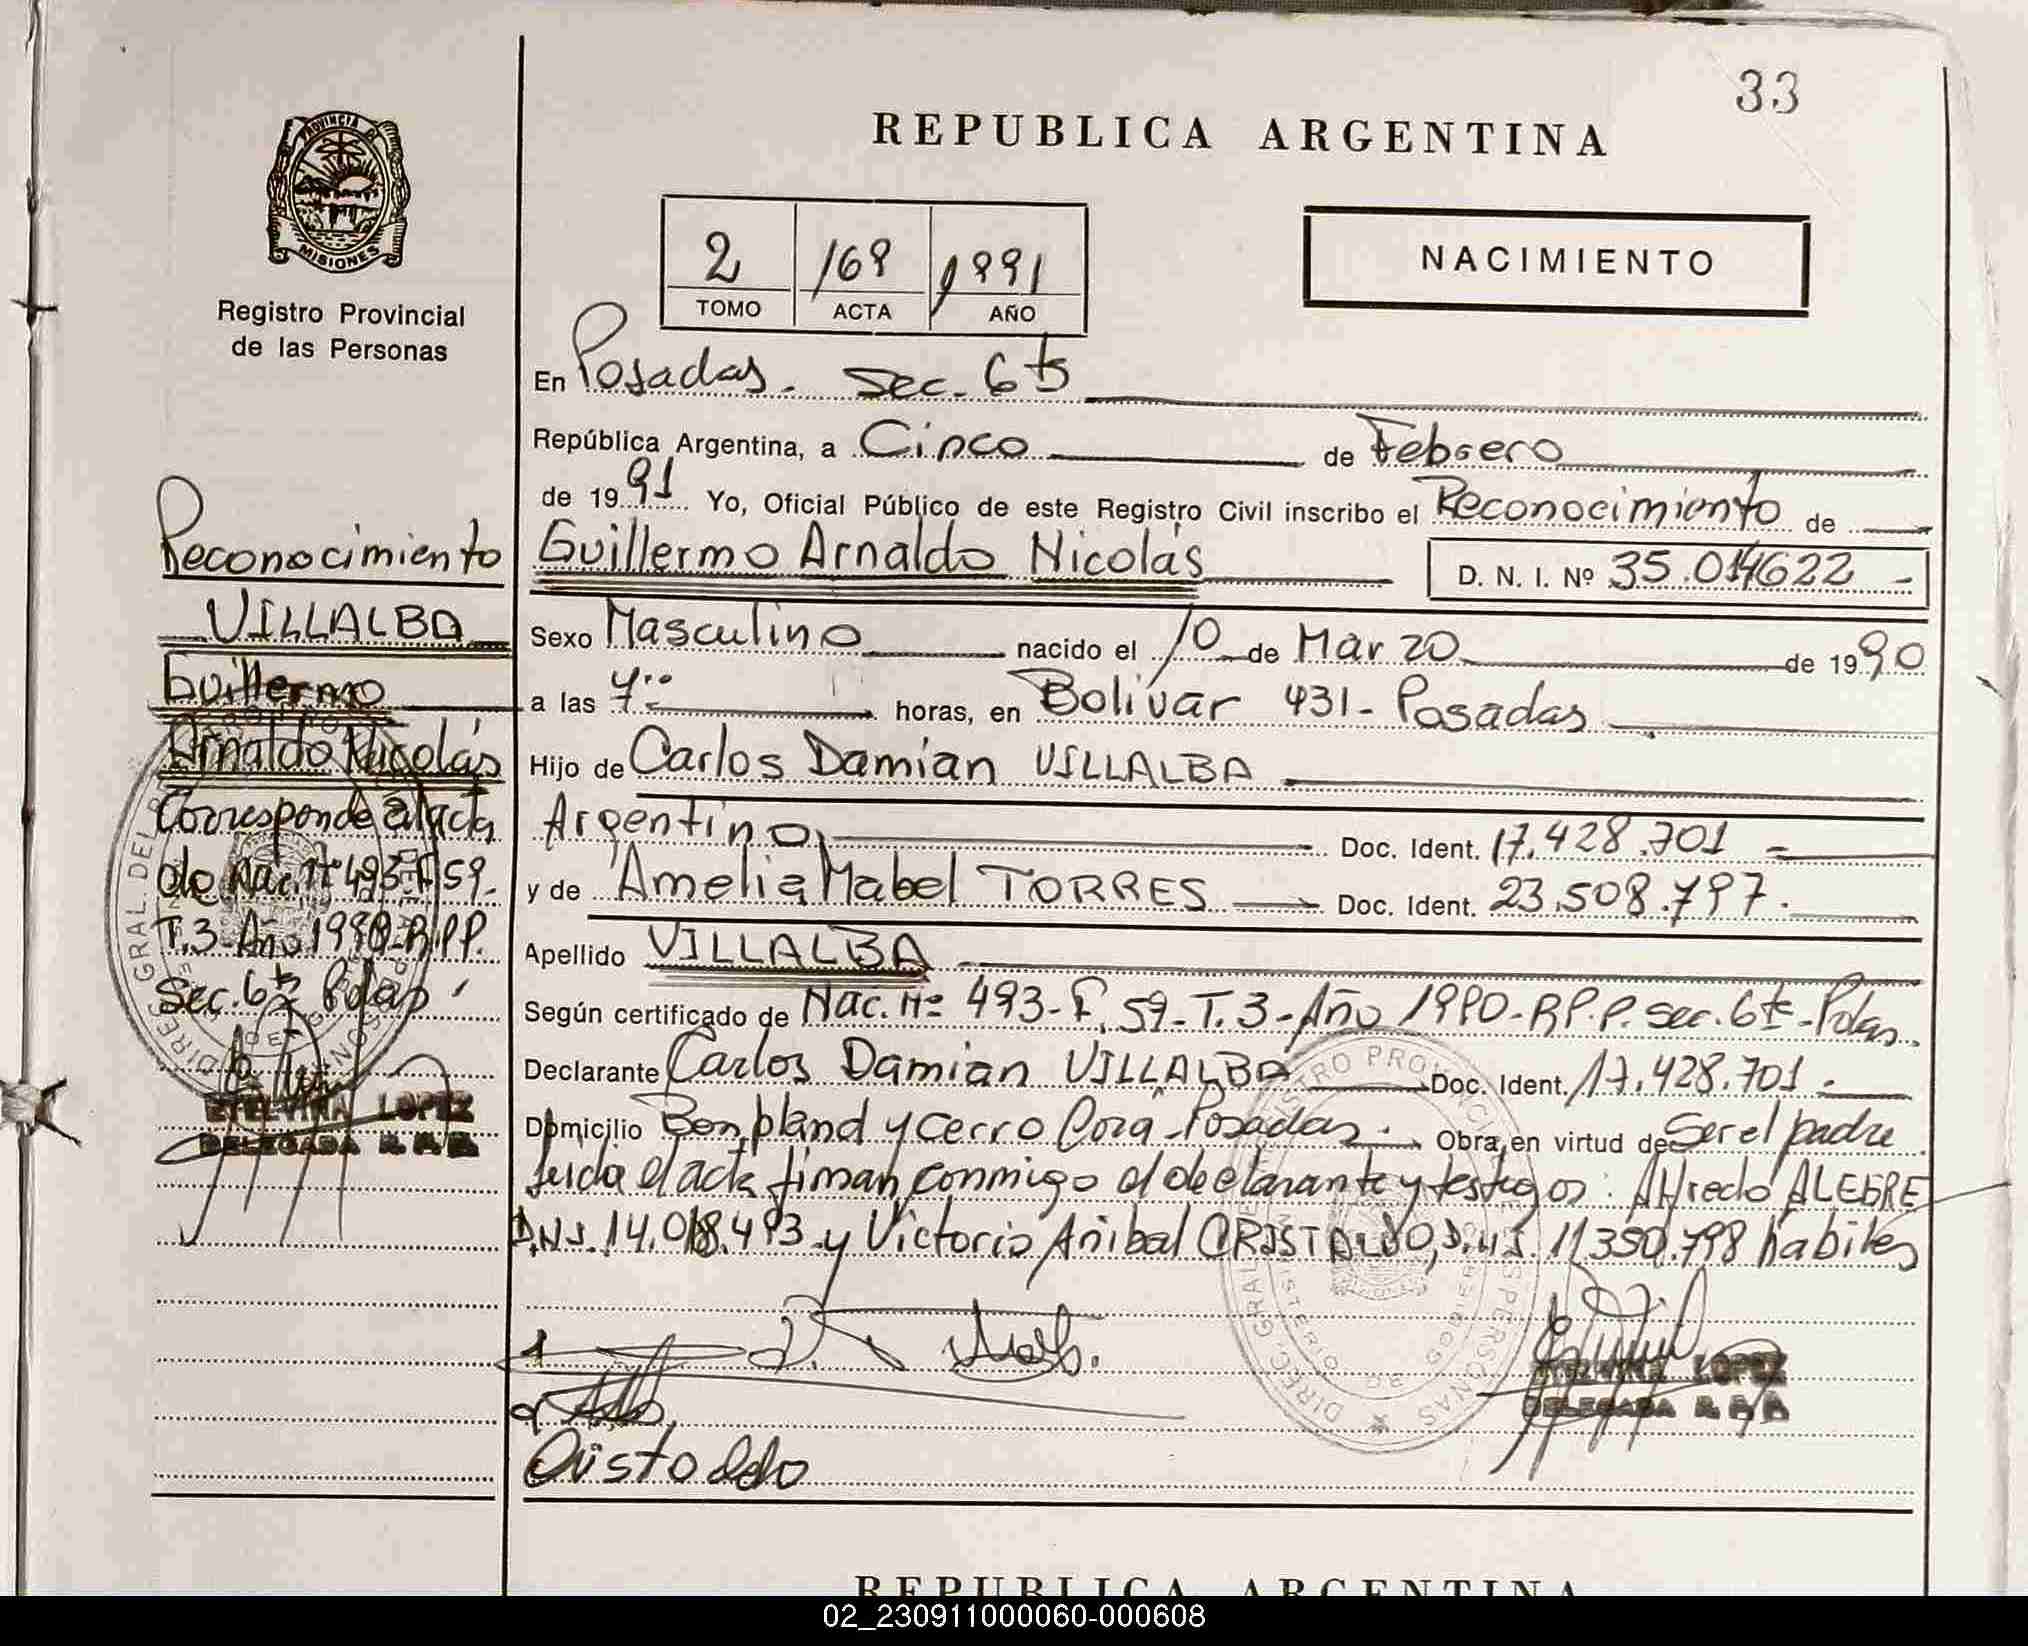 33
REPUBLICA ARGENTINA
PROVINCIA DE
MISIONES
Registro Provincial
de las Personas
2 169 1991
TOMO ACTA AÑO
NACIMIENTO
En Posadas. Sec. 6ta
República Argentina, a Cinco de Febrero
de 1991 Yo, Oficial Público de este Registro Civil inscribo el Reconocimiento de
Guillermo Arnaldo Nicolás D. N. I. Nº 35.014622 -
Sexo Masculino nacido el 10 de Marzo de 1990
a las horas, en Bolívar 431 - Posadas
Hijo de Carlos Damian VILLALBA
Argentino Doc. Ident. 17.428.701 -
y de Amelia Mabel TORRES Doc. Ident. 23.508.797.
Apellido VILLALBA
Según certificado de Nac. Nº 493 - F. 59 - T. 3 - Año 1990 - R.P.P. Sec. 6ta - Pdas.
Declarante Carlos Damian VILLALBA Doc. Ident. 17.428.701.
Domicilio Bonpland y Cerro Corá - Posadas. Obra, en virtud de Ser el padre
leida el acta firman conmigo el declarante y testigos: Alfredo ALEGRE
D.N.I. 14.018.493 y Victorio Anibal CRISTALDO, D.N.I. 11.350.798 habiles
Cristaldo
ETELVINA LOPEZ
DELEGADA R.P.P.
Reconocimiento
VILLALBA
Guillermo
Arnaldo Nicolás
Corresponde al acta
de Nac. Nº 493 - F 59.
T. 3 - Año 1990 - R.P.P.
Sec. 6ta Pdas
ETELVINA LOPEZ
DELEGADA R.P.P.
REPUBLICA ARGENTINA
02_230911000060-000608